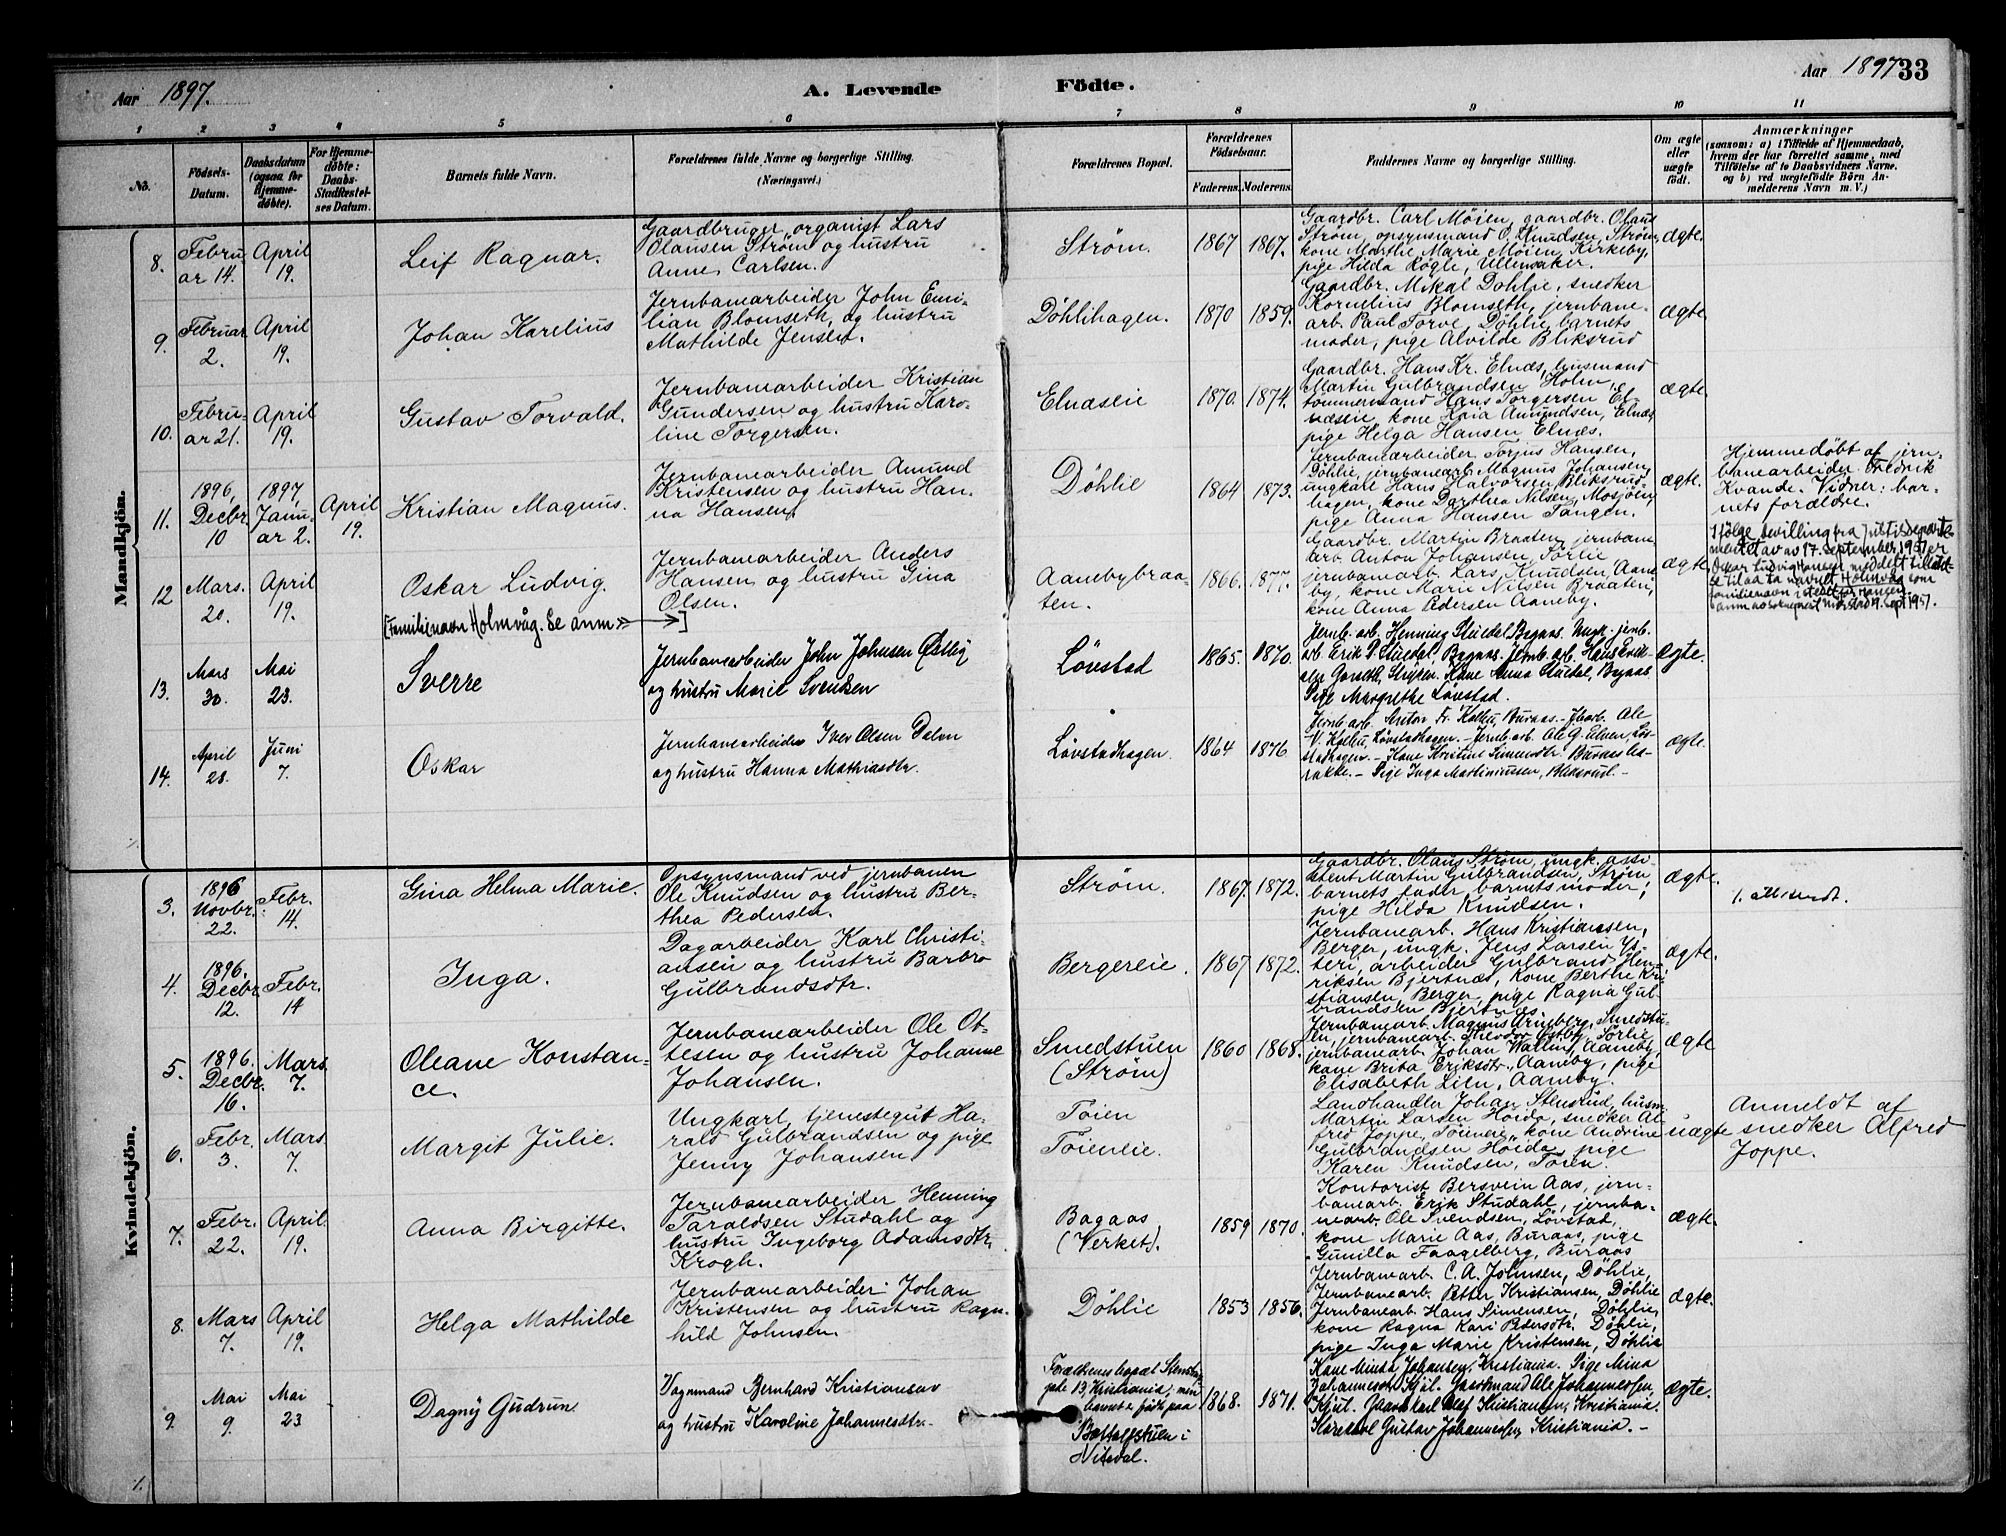 Aar 1897. A. Levende Födte. Aar 1897 33
1 2 3 4 5 6 7 8 9 10 11
No. Födsels-Datum. Daabsdatum (ogsaa for Hjemme-døbte). For Hjemme-døbte: Daabs-Stadfæstel-ses Datum. Barnets fulde Navn. Forældrenes fulde Navne og borgerlige Stilling. (Næringsvei.) Forældrenes Bopæl. Forældrenes Födselsaar. Faderens. Moderens. Faddernes Navne og borgerlige Stilling. Om ægte eller uægte født. Anmærkninger (saasom: a) i Tilfælde af Hjemmedaab, hvem der har forrettet samme, med Tilföielse af to Daabsvidners Navne, og b) ved uægtefödte Börn An-melderens Navn m. V.)
Mandkjön.
8. Febru
ar 14.
April
19.
Leif Ragnar.
Gaardbruger, organist Lars
Olausen Strøm og hustru
Anne Carlsen.
Strøm.
1867 1867.
Gaardbr. Carl Møien, gaardbr. Olaus
Strøm, opsynsmand O. Knudsen, Strøm,
kone Marthe Marie Møien Kirkeby,
pige Hilda Røgle, Ullensaker.
ægte.
9. Februar
2.
April
19.
Johan Karelius
Jernbanearbeider John Emi-
lian Blomseth, og hustru
Mathilde Jensen.
Döhlihagen.
1870 1859.
Gaardbr. Mikal Dohlie, snedker
Kornelius Blomseth, jernbane-
arb. Paul Torve, Döhlie, barnets
moder, pige Alvilde Bliksrud
ægte.
10. Febru-
ar 21.
April
19.
Gustav Torvald.
Jernbanearbeider Kristian
Gundersen og hustru Karo-
line Torgersen.
Elnæseie
1870. 1874.
Gaardbr. Hans Kr. Elnæs, husmand
Martin Gulbrandsen Holm,
tömmermand Hans Torgersen El-
næseie, kone Amundsen, Elnæs,
pige Helga Hansen Elnæs.
ægte.
11. 1896,
Decbr.
10
1897,
Janu-
ar 2.
April
19.
Kristian Magnus.
Jernbanearbeider Amund
Kristensen og hustru Han-
na Hansen.
Döhlie
1864 1873.
Jernbanearbeider Torjus Hansen,
Döhlie, jernbanearb. Magnus Johansen,
ungkarl Hans Halvorsen Bliksrud-
hagen, kone Darthea Nilsen, Mosjøen,
pige Anna Hansen Tangen.
ægte.
Hjemmedöbt af jern-
banearbeider Fredrik
Kvande. Vidner: bar-
nets forældre.
12 Mars.
20.
April
19.
Oskar Ludvig.
[Familienavn Holmvåg. Se anm →]
Jernbanearbeider Anders
Hansen og hustru Gina
Olsen.
Aanebybraa-
ten.
1866. 1877.
Gaardbr. Martin Braaten, jernbane
arb. Anton Johansen, Sørlie
jernbanearb. Lars Knudsen, Aane
by, kone Marie Nilsen Braaten,
kone Anna Pedersen Aaneby.
ægte.
Ifølge bevilling fra Justisdeparte-
mentet av 17. september 1951 er
Oskar Ludvig Hansen meddelt tillatel-
se til å ta navnet Holmvåg som
familienavn i stedet for Hansen.
13. Mars
30.
Mai
23.
Sverre
Jernbanearbeider John Johnsen
og hustru Marie Svendsen
Løvstad
1865. 1870.
Jernb. arb. Henning Studal Bagaas. Ungk. jernb.
arb. Erik P. Studal, Bagaas. Jernb. arb. Hans Erik-
sen Stryken. Kone Anna Studal, Bagaas
Pige Margrethe Løvstad.
ægte.
14. April
28.
Juni
7.
Oskar
Jernbanearbeider Iver Olsen Dalen
og hustru Hanna Mathiasdtr.
Løvstadhagen.
1864 1876
Jernb. arb. Anton Fr. Buraas. – Jb. arb. Ole
V. Løvstadhagen. – Jernb. arb. Ole G. Olsen, Løv-
stadhagen. – Kone Kristine Simensdtr. Buraas
– Pige Inga Mathinussen, Bliksrud. –
ægte.
Kvindekjön.
3. 1896
Novbr.
22.
Febr.
14.
Gina Helma Marie.
Opsynsmand ved jernbanen
Ole Knudsen og hustru Ber-
thea Pedersen.
Strøm.
1867. 1872.
Gaardbr. Olaus Strøm, ungk. assi-
stent Martin Gulbrandsen, Strøm
barnets fader, barnets moder,
pige Hilda Knudsen.
ægte.
4. 1896.
Decbr.
12.
Febr.
14
Inga.
Dagarbeider Karl Christi-
ansen og hustru Barbro
Gulbrandsdtr.
Bergereie.
1867 1872.
Jernbanearb. Hans Kristiansen,
Berger, ungk. Jens Larsen Ys-
teri, arbeider Gulbrand Hen-
riksen Bjertnæs, Kone Berthe Kri-
stiansen, Berger, pige Ragna Gul-
brandsen Bjertnæs.
ægte.
5. 1896.
Decbr.
16.
Mars
7.
Oleane Konstan-
ce.
Jernbanearbeider Ole Ot-
tesen og hustru Johanne
Johansen.
Smedstuen
(Strøm)
1860 1868.
Jernbanearb. Magnus Arneberg, Smedstu-
en, jernbanearb. Theodor Østby, Sørlie,
jernbanearb. Johan Wallin, Aaneby,
kone Brita Eriksdtr., Aaneby, pige
Elisabeth Lien, Aaneby.
ægte
6. Febr.
3.
Mars.
7.
Margit Julie.
Ungkarl, tjenestegut Ha-
rald Gulbrandsen og pige
Jenny Johansen
Töien
Töieneie.
Landhandler Johan Stensrud, husm.
Martin Larsen Høida, snedker Al-
fred Joppe, Töieneie, kone Andrine
Gulbrandsen Høida, pige
Karen Knudsen, Töien.
uægte
Anmeldt af
snedker Alfred
Joppe.
7. Febr.
22.
April.
19.
Anna Birgitte.
Jernbanearbeider Henning
Taraldsen Studahl og
hustru Ingeborg Adamsdtr.
Krogh.
Bagaas
(Verket).
1859 1870.
Kontorist Bersvein Aas, jern-
banearb. Erik Studahl, jernba-
nearb. Ole Svendsen, Løvstad,
kone Marie Aas, Buraas, pige
Gunilla Faagelberg, Buraas
ægte.
8. Mars
7.
April
19.
Helga Mathilde
Jernbanearbeider Johan
Kristensen og hustru Ragn-
hild Johnsen.
Döhlie
1853 1856.
Jernbanearb. C. A. Johnsen, Döhlie,
Jernbanearb. Petter Kristiansen, Döhlie
Jernbanearb. Hans Simensen, Döhlie,
kone Ragna Kari Pedersdtr. Döhlie,
pige Inga Marie Kristensen, Döhlie
ægte.
9. Mai
9.
Mai
23
Dagny Gudrun
Vognmand Bernhard Kristiansen
og hustru Karoline Johannesdtr.
Forældrenes bopæl
13, Kristiania; men
barnet er født paa
i
Nitedal.
1868. 1871.
Kone Johansen, Kristiania. Pige Mina
Johannesen Kjul. Gaardmand Ole Johannesen,
Kjul. Olaf Kristiansen, Kristiania.
Gustav Johannesen, Kristiania. –
ægte.